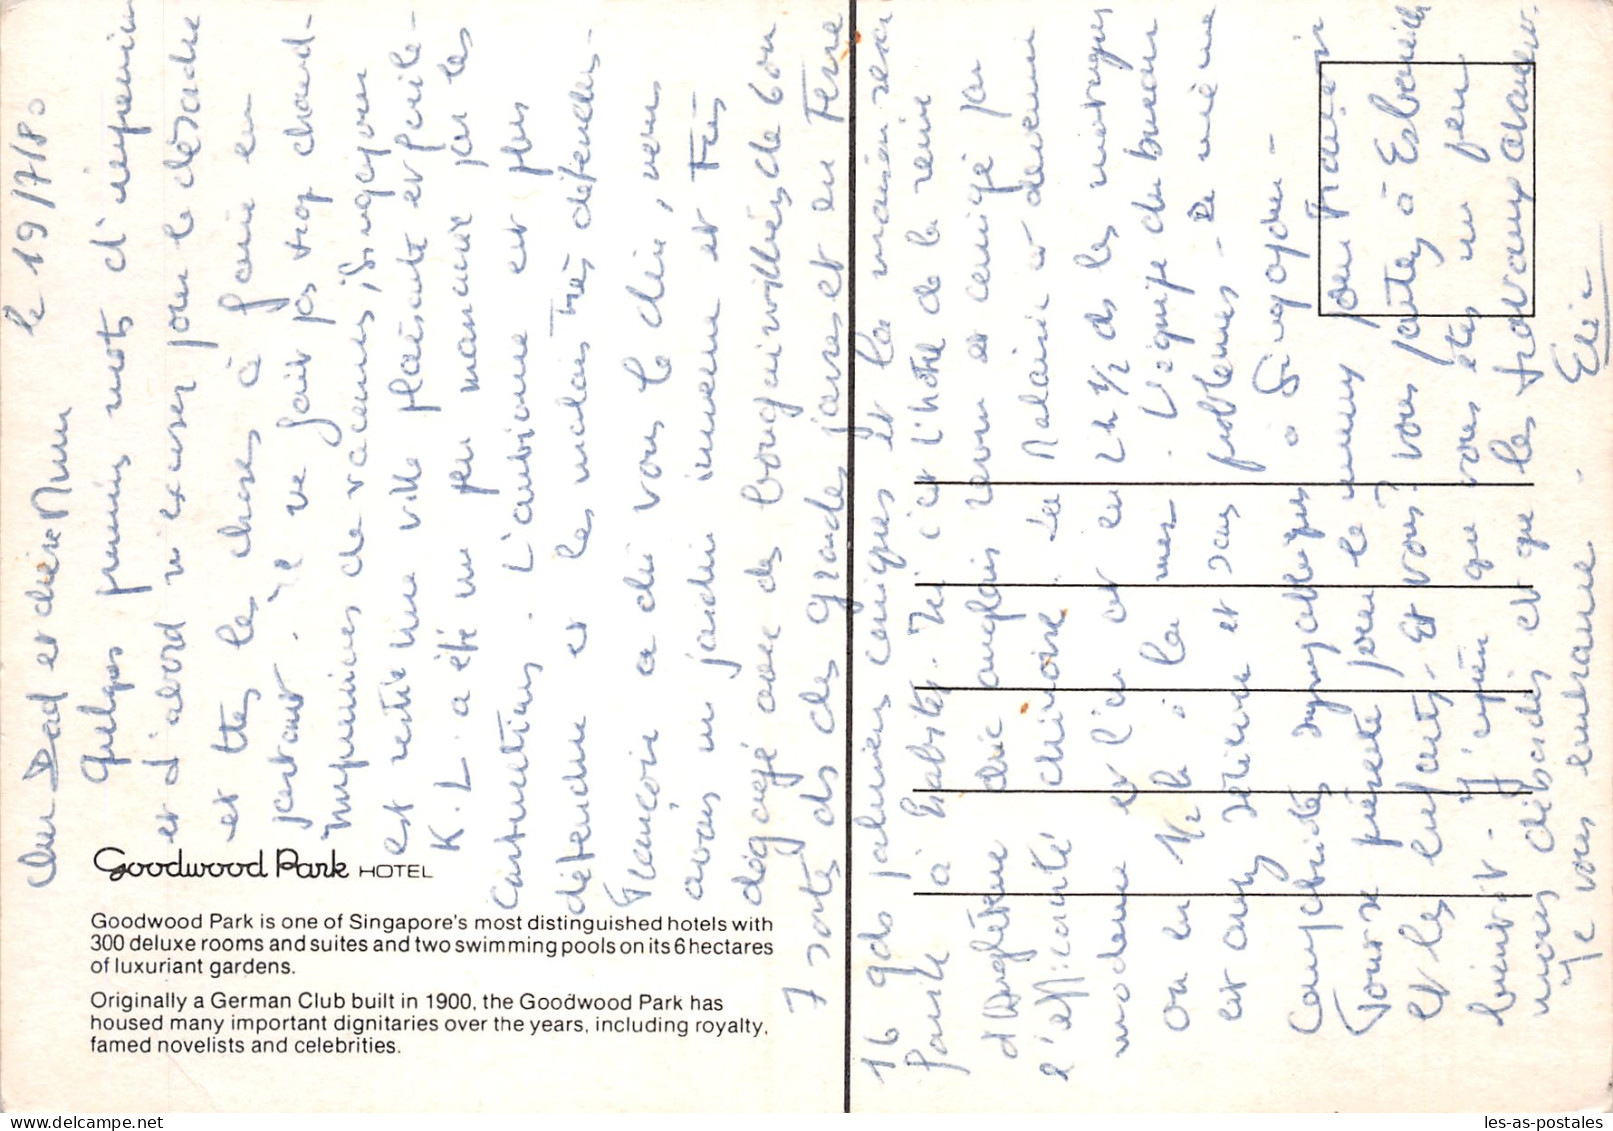 le 19/7/80
Cher Dad et chère Mum
Quelques premiers mots d'impression
et d'abord m'excuser pour le désordre
et ttes les choses à faire en
partant. Il ne fait pas trop chaud-
Impressions de vacances, Singapour
est restée une ville plaisante et facile-
K.L. a été un peu massacré par les
constructions. L'ambiance est plus
détendue et les malais très détendus-
François a dû vous le dire, nous
avons un jardin immense et très
dégagé avec des bougainvilliers de 6 ou
7 sortes ds des grandes jarres et en Terre
16 gds palmiers coniques et la maison sera
facile à habiter. Ici c'est l'hôtel de la reine
d'Angleterre chic anglais revu et corrigé par
l'efficacité chinoise. La Malaisie est devenue
moderne et l'on est en 2h 1/2 ds les montagnes
ou en 1/2 h à la mer. L'équipe du bureau
est assez sérieuse et sans problèmes - De même
à Singapour-
Tout se présente bien le mieux pour François
et les enfants. Et vous? vous partez à Esbareich
bientôt. J'espère que vous êtes un peu
moins débordés et que les travaux avancent.
Je vous embrasse.
Goodwood Park HOTEL
Goodwood Park is one of Singapore's most distinguished hotels with
300 deluxe rooms and suites and two swimming pools on its 6 hectares
of luxuriant gardens.
Originally a German Club built in 1900, the Goodwood Park has
housed many important dignitaries over the years, including royalty,
famed novelists and celebrities.
les-as-postales